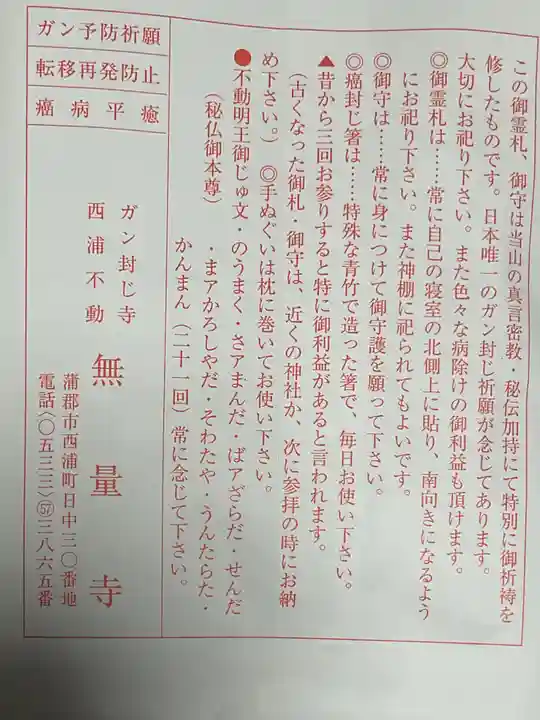 この御霊札、御守は当山の真言密教・秘伝加持にて特別に御祈祷を
修したものです。日本唯一のガン封じ祈願が念じてあります。
大切にお祀り下さい。また色々な病除けの御利益も頂けます。
◎御霊札は……常に自己の寝室の北側上に貼り、南向きになるよう
にお祀り下さい。また神棚に祀られてもよいです。
◎御守は……常に身につけて御守護を願って下さい。
◎癌封じ箸は……特殊な青竹で造った箸で、毎日お使い下さい。
▲昔から三回お参りすると特に御利益があると言われます。
（古くなった御札・御守は、近くの神社か、次に参拝の時にお納
め下さい。）　◎手ぬぐいは枕に巻いてお使い下さい。
●不動明王御じゅ文・のうまく・さアまんだ・ばアざらだ・せんだ
（秘仏御本尊）　・まアかろしやだ・そわたや・うんたらた・
かんまん（二十一回）常に念じて下さい。
ガン予防祈願
転移再発防止
癌病平癒
ガン封じ寺
西浦不動
無量寺
蒲郡市西浦町日中三〇番地
電話〈〇五三三〉㊼三八六五番